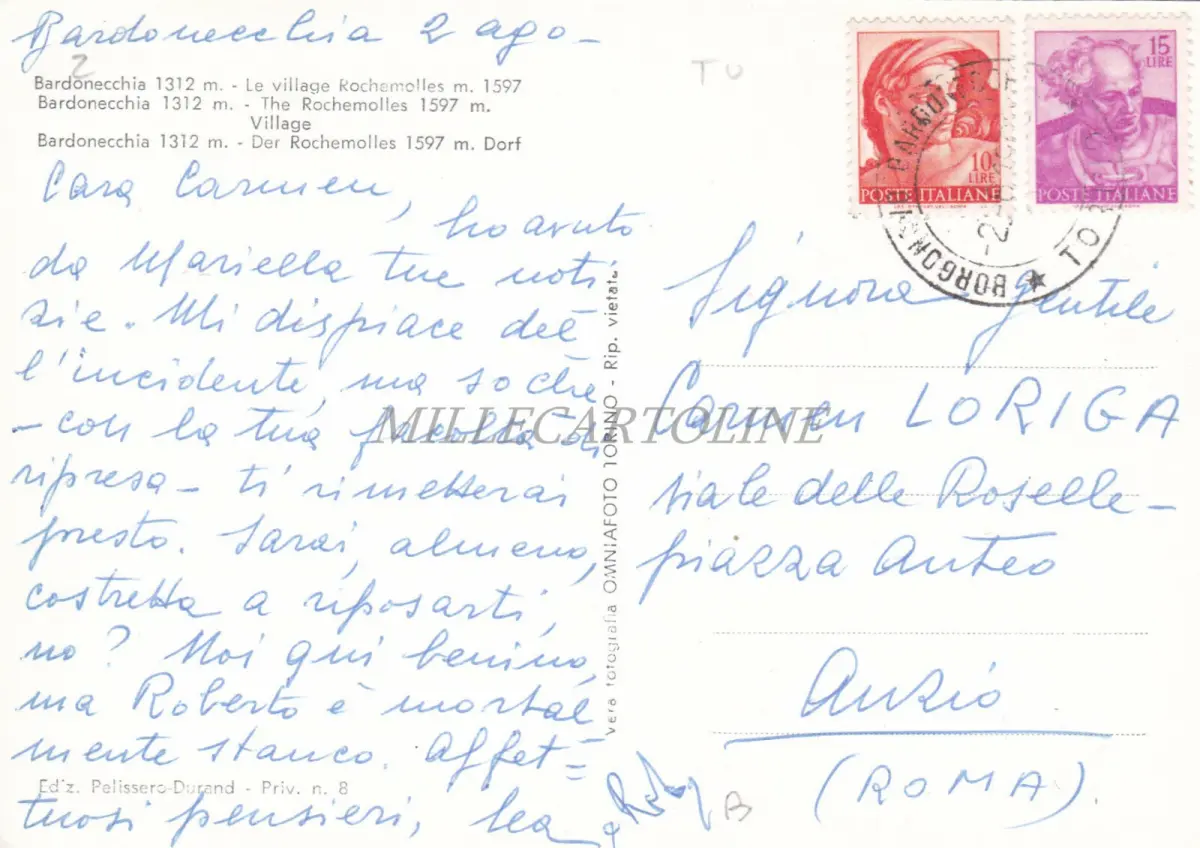 Bardonecchia 2 ago -
2
Bardonecchia 1312 m. - Le village Rochemolles m. 1597
Bardonecchia 1312 m. - The Rochemolles 1597 m.
Village
Bardonecchia 1312 m. - Der Rochemolles 1597 m. Dorf
Cara Carmen,
ho avuto
da Mariella tue noti
zie. Mi dispiace del
l'incidente, ma so che
- con la tua facoltà di
ripresa - ti rimetterai
presto. Sarai, almeno,
costretta a riposarti,
no? Noi qui benino,
ma Roberto è mortal
mente stanco. Affet=
tuosi pensieri, Lea
Ediz. Pelissero-Durand - Priv. n. 8
e
Vera fotografia OMNIAFOTO TORINO - Rip. vietata
MILLECARTOLINE
TU
10
LIRE
POSTE ITALIANE
15
LIRE
POSTE ITALIANE
BORGONUOVO BARDONECCHIA ★ TO
Signora Gentile
Carmen LORIGA
viale delle Roselle -
piazza Anteo
Anzio
(ROMA)
B